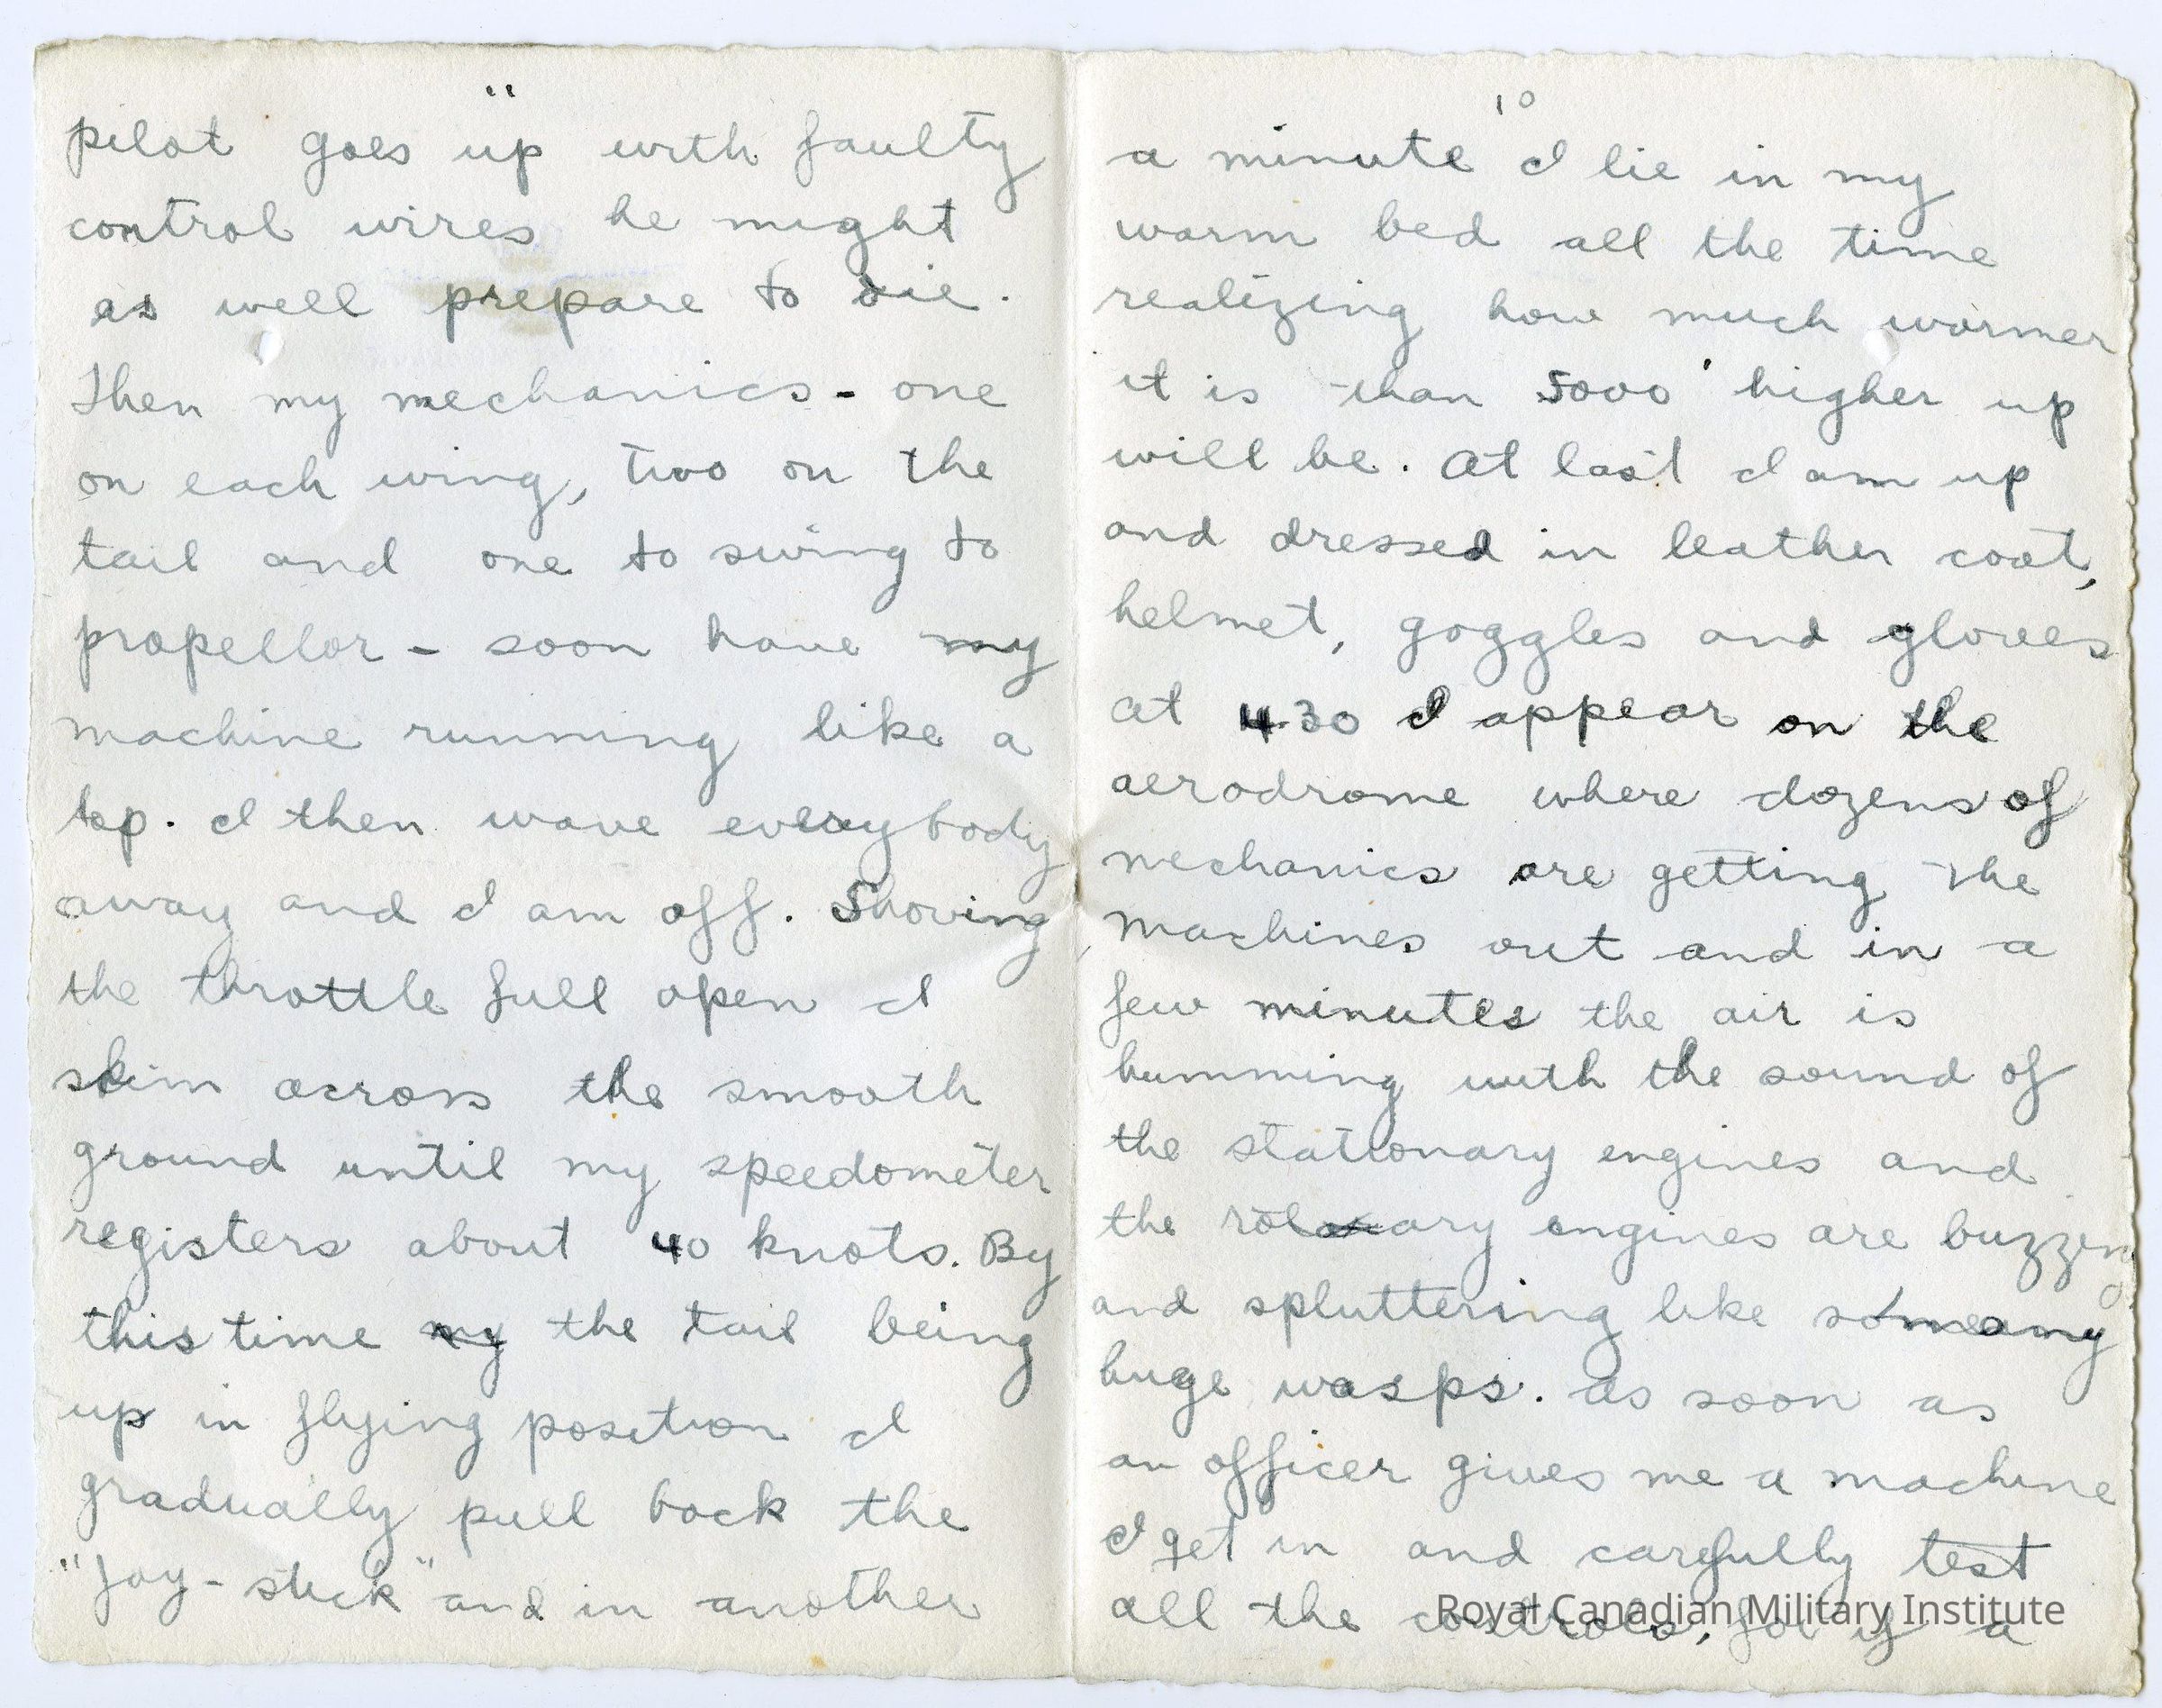 10
a minute I lie in my
warm bed all the time
realizing how much warmer
it is than 5000' higher up
will be. At last I am up
and dressed in leather coat,
helmet, goggles and gloves
at 4.30 I appear on the
aerodrome where dozens of
mechanics are getting the
machines out and in a
few minutes the air is
humming with the sound of
the stationary engines and
the rotary engines are buzzing
and spluttering like so many
huge wasps. As soon as
an officer gives me a machine
I get in and carefully test
all the controls, for if a
11
pilot goes up with faulty
control wires he might
as well prepare to die.
Then my mechanics - one
on each wing, two on the
tail and one to swing to
propellor - soon have my
machine running like a
top. I then wave everybody
away and I am off. Shoving
the throttle full open I
skim across the smooth
ground until my speedometer
registers about 40 knots. By
this time my the tail being
up in flying position I
gradually pull back the
"joy-stick" and in another
Royal Canadian Military Institute